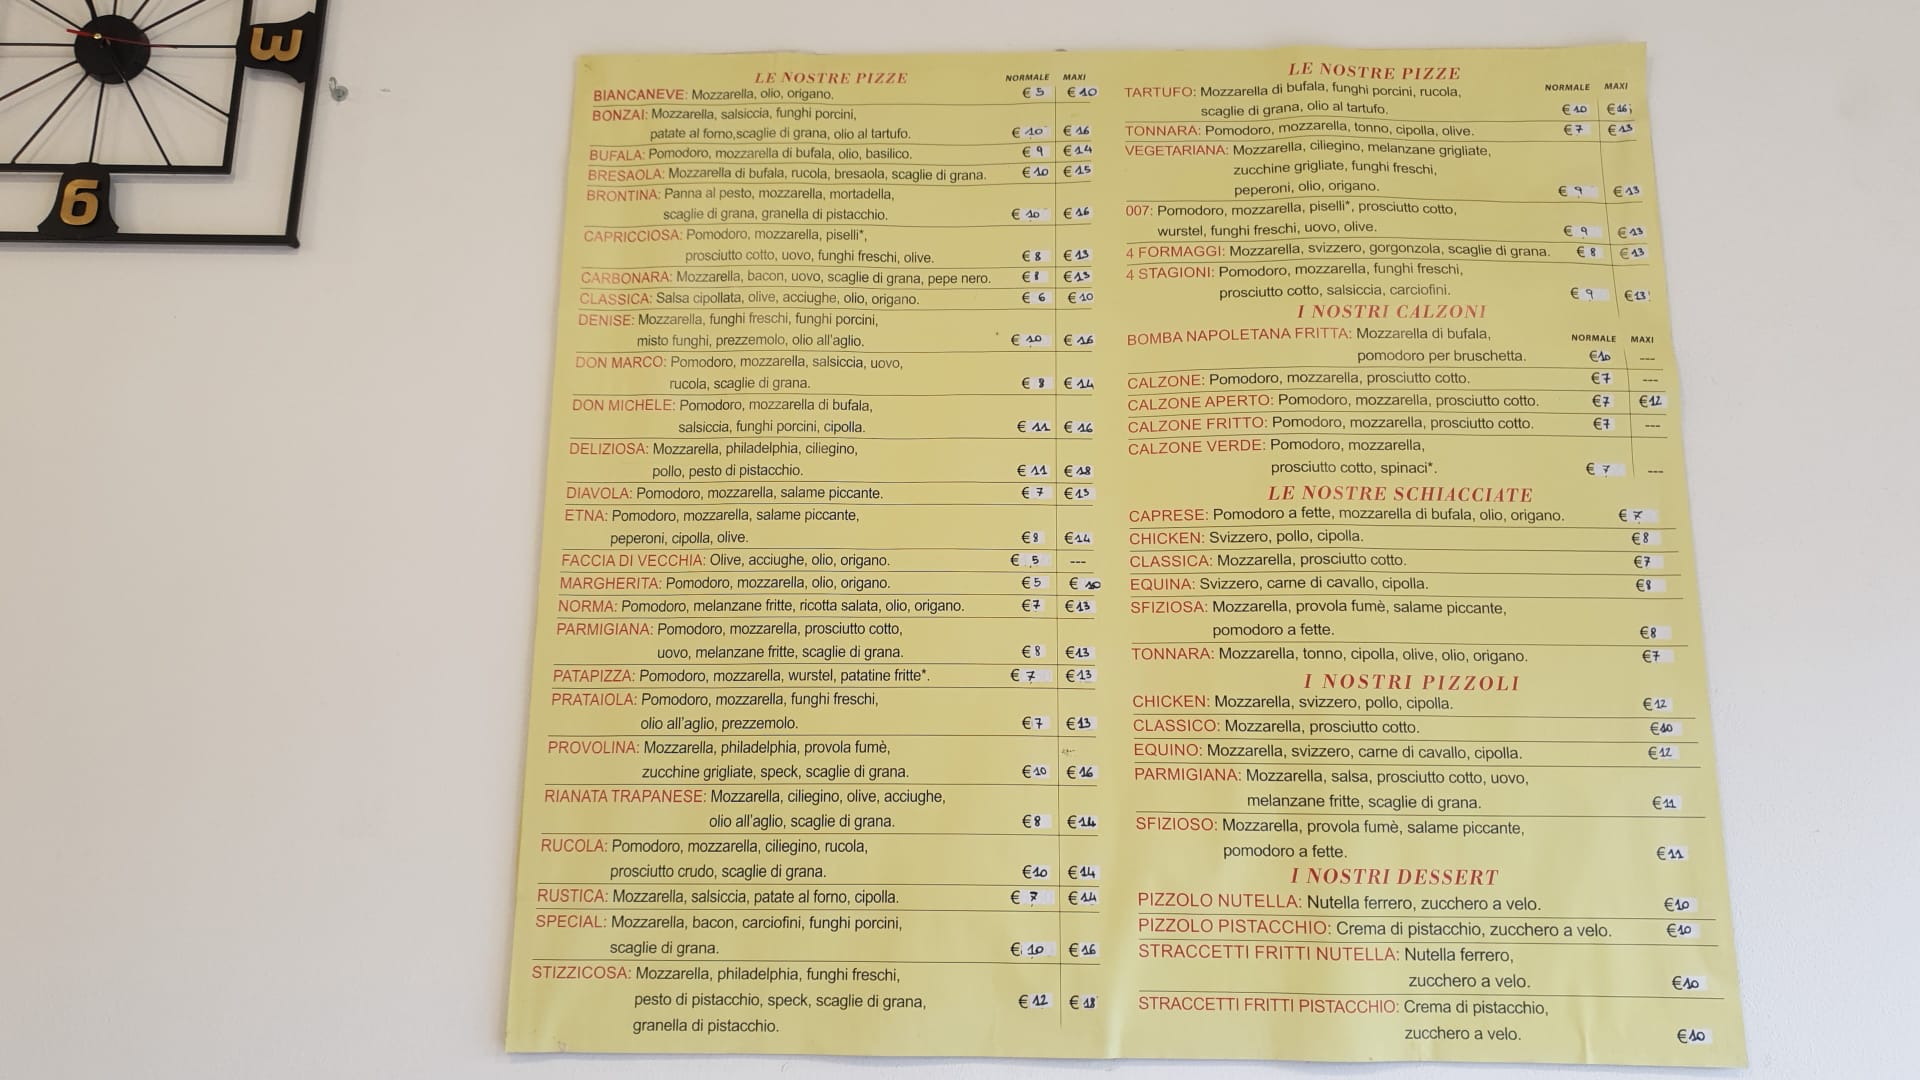 3
6
LE NOSTRE PIZZE NORMALE MAXI
BIANCANEVE: Mozzarella, olio, origano. € 5 € 10
BONZAI: Mozzarella, salsiccia, funghi porcini,
patate al forno,scaglie di grana, olio al tartufo. € 10 € 16
BUFALA: Pomodoro, mozzarella di bufala, olio, basilico. € 9 € 14
BRESAOLA: Mozzarella di bufala, rucola, bresaola, scaglie di grana. € 10 € 15
BRONTINA: Panna al pesto, mozzarella, mortadella,
scaglie di grana, granella di pistacchio. € 10 € 16
CAPRICCIOSA: Pomodoro, mozzarella, piselli*,
prosciutto cotto, uovo, funghi freschi, olive. € 8 € 13
CARBONARA: Mozzarella, bacon, uovo, scaglie di grana, pepe nero. € 8 € 13
CLASSICA: Salsa cipollata, olive, acciughe, olio, origano. € 6 € 10
DENISE: Mozzarella, funghi freschi, funghi porcini,
misto funghi, prezzemolo, olio all'aglio. € 10 € 16
DON MARCO: Pomodoro, mozzarella, salsiccia, uovo,
rucola, scaglie di grana. € 8 € 14
DON MICHELE: Pomodoro, mozzarella di bufala,
salsiccia, funghi porcini, cipolla. € 11 € 16
DELIZIOSA: Mozzarella, philadelphia, ciliegino,
pollo, pesto di pistacchio. € 11 € 18
DIAVOLA: Pomodoro, mozzarella, salame piccante. € 7 € 13
ETNA: Pomodoro, mozzarella, salame piccante,
peperoni, cipolla, olive. € 8 € 14
FACCIA DI VECCHIA: Olive, acciughe, olio, origano. € 5 ---
MARGHERITA: Pomodoro, mozzarella, olio, origano. € 5 € 10
NORMA: Pomodoro, melanzane fritte, ricotta salata, olio, origano. € 7 € 13
PARMIGIANA: Pomodoro, mozzarella, prosciutto cotto,
uovo, melanzane fritte, scaglie di grana. € 8 € 13
PATAPIZZA: Pomodoro, mozzarella, wurstel, patatine fritte*. € 7 € 13
PRATAIOLA: Pomodoro, mozzarella, funghi freschi,
olio all'aglio, prezzemolo. € 7 € 13
PROVOLINA: Mozzarella, philadelphia, provola fumè,
zucchine grigliate, speck, scaglie di grana. € 10 € 16
RIANATA TRAPANESE: Mozzarella, ciliegino, olive, acciughe,
olio all'aglio, scaglie di grana. € 8 € 14
RUCOLA: Pomodoro, mozzarella, ciliegino, rucola,
prosciutto crudo, scaglie di grana. € 10 € 14
RUSTICA: Mozzarella, salsiccia, patate al forno, cipolla. € 7 € 14
SPECIAL: Mozzarella, bacon, carciofini, funghi porcini,
scaglie di grana. € 10 € 16
STIZZICOSA: Mozzarella, philadelphia, funghi freschi,
pesto di pistacchio, speck, scaglie di grana, € 12 € 18
granella di pistacchio.
LE NOSTRE PIZZE
NORMALE MAXI
TARTUFO: Mozzarella di bufala, funghi porcini, rucola,
scaglie di grana, olio al tartufo. € 10 € 16
TONNARA: Pomodoro, mozzarella, tonno, cipolla, olive. € 7 € 13
VEGETARIANA: Mozzarella, ciliegino, melanzane grigliate,
zucchine grigliate, funghi freschi,
peperoni, olio, origano. € 9 € 13
007: Pomodoro, mozzarella, piselli*, prosciutto cotto,
wurstel, funghi freschi, uovo, olive. € 9 € 13
4 FORMAGGI: Mozzarella, svizzero, gorgonzola, scaglie di grana. € 8 € 13
4 STAGIONI: Pomodoro, mozzarella, funghi freschi,
prosciutto cotto, salsiccia, carciofini. € 9 € 13
I NOSTRI CALZONI
NORMALE MAXI
BOMBA NAPOLETANA FRITTA: Mozzarella di bufala,
pomodoro per bruschetta. € 10 ---
CALZONE: Pomodoro, mozzarella, prosciutto cotto. € 7 ---
CALZONE APERTO: Pomodoro, mozzarella, prosciutto cotto. € 7 € 12
CALZONE FRITTO: Pomodoro, mozzarella, prosciutto cotto. € 7 ---
CALZONE VERDE: Pomodoro, mozzarella,
prosciutto cotto, spinaci*. € 7 ---
LE NOSTRE SCHIACCIATE
CAPRESE: Pomodoro a fette, mozzarella di bufala, olio, origano. € 7
CHICKEN: Svizzero, pollo, cipolla. € 8
CLASSICA: Mozzarella, prosciutto cotto. € 7
EQUINA: Svizzero, carne di cavallo, cipolla. € 8
SFIZIOSA: Mozzarella, provola fumè, salame piccante,
pomodoro a fette. € 8
TONNARA: Mozzarella, tonno, cipolla, olive, olio, origano. € 7
I NOSTRI PIZZOLI
CHICKEN: Mozzarella, svizzero, pollo, cipolla. € 12
CLASSICO: Mozzarella, prosciutto cotto. € 10
EQUINO: Mozzarella, svizzero, carne di cavallo, cipolla. € 12
PARMIGIANA: Mozzarella, salsa, prosciutto cotto, uovo,
melanzane fritte, scaglie di grana. € 11
SFIZIOSO: Mozzarella, provola fumè, salame piccante,
pomodoro a fette. € 11
I NOSTRI DESSERT
PIZZOLO NUTELLA: Nutella ferrero, zucchero a velo. € 10
PIZZOLO PISTACCHIO: Crema di pistacchio, zucchero a velo. € 10
STRACCETTI FRITTI NUTELLA: Nutella ferrero,
zucchero a velo. € 10
STRACCETTI FRITTI PISTACCHIO: Crema di pistacchio,
zucchero a velo. € 10